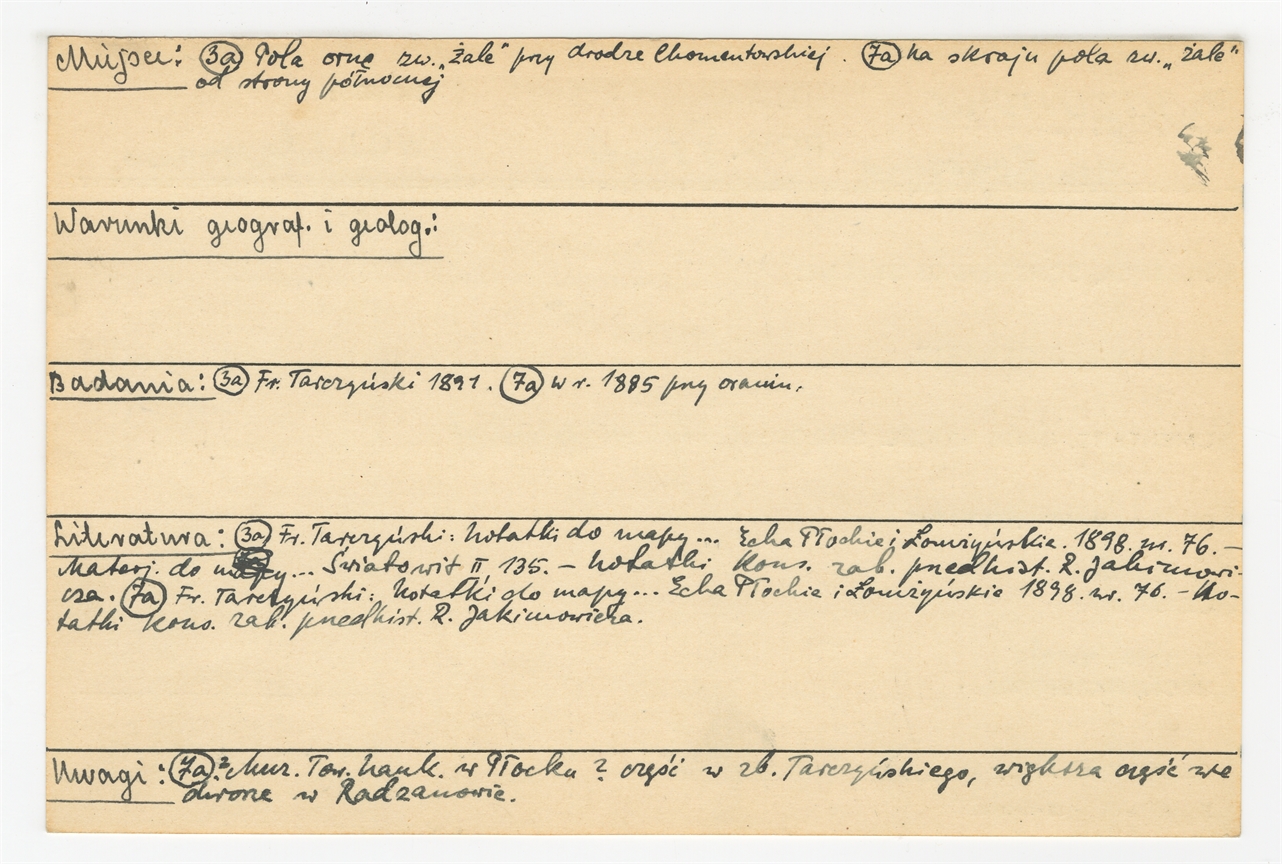 Miejsce: (3a) Pola orne zw. „Żale" przy drodze Chomentowskiej. (7a) Na skraju pola zw. „Żale"
od strony północnej
Warunki geograf. i geolog.:
Badania: (3a) Fr. Tarczyński 1891. (7a) W r. 1885 przy oraniu.
Literatura: (3a) Fr. Tarczyński: Notatki do mapy... Echa Płockie i Łomżyńskie. 1898. nr. 76. –
Materj. do mapy... Światowit II, 135. – Notatki Kons. zab. przedhist. R. Jakimowi-
cza. (7a) Fr. Tarczyński: Notatki do mapy... Echa Płockie i Łomżyńskie 1898. nr. 76. – No-
tatki Kons. zab. przedhist. R. Jakimowicza.
Uwagi: (7a)? Muz. Tow. Nauk. w Płocku? część w zb. Tarczyńskiego, większa część we
dworze w Radzanowie.